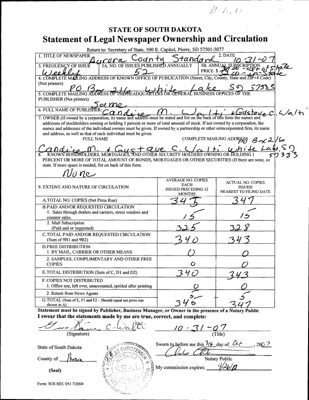 STATE OF SOUTH DAKOTA
Statement of Legal Newspaper Ownership and Circulation
Return to: Secretary of State, 500 E. Capitol, Pierre, SD 57501-5077
1. TITLE OF NEWSPAPER Aurora County Standard 2. DATE 10-31-07
3. FREQUENCY OF ISSUE Weekly 3A. NO. OF ISSUES PUBLISHED ANNUALLY 52 3B. ANNUAL SUBSCRIPTION PRICE $
4. COMPLETE MAILING ADDRESS OF KNOWN OFFICE OF PUBLICATION (Street, City, County, State and Zip+4 Code)
(Not printers)
PO Box 216 White Lake SD 57383
5. COMPLETE MAILING ADDRESS OF HEADQUARTERS OF GENERAL BUSINESS OFFICES OF THE
PUBLISHER (Not printers)
Same
6. FULL NAME OF PUBLISHER: Candice M. Walti + Gustave C. Walti
7. OWNER (If owned by a corporation, its name and address must be stated and list on the back of this form the names and
addresses of stockholders owning or holding 1 percent or more of total amount of stock. If not owned by a corporation, the
names and addresses of the individual owners must be given. If owned by a partnership or other unincorporated firm, its name
and address, as well as that of each individual must be given.
FULL NAME COMPLETE MAILING ADDRESS PO Box 216
Candice M. + Gustave C. Walti White Lake, SD
57383
8. KNOWN BONDHOLDERS, MORTGAGEES, AND OTHER SECURITY HOLDERS OWNING OR HOLDING 1
PERCENT OR MORE OF TOTAL AMOUNT OF BONDS, MORTGAGES OR OTHER SECURITIES (If there are none, so
state. If more space is needed, list on back of this form.
None
9. EXTENT AND NATURE OF CIRCULATION
AVERAGE NO. COPIES EACH ISSUED PRECEDING 12 MONTHS
ACTUAL NO. COPIES ISSUED NEAREST TO FILING DATE
A. TOTAL NO. COPIES (Net Press Run) 345 347
B. PAID AND/OR REQUESTED CIRCULATION
1. Sales through dealers and carriers, street vendors and
counter sales. 15 15
2. Mail Subscription
(Paid and or requested) 325 328
C. TOTAL PAID AND/OR REQUESTED CIRCULATION
(Sum of 9B1 and 9B2) 340 343
D. FREE DISTRIBUTION
1. BY MAIL, CARRIER OR OTHER MEANS 0 0
2. SAMPLES, COMPLIMENTARY AND OTHER FREE
COPIES 0 0
E. TOTAL DISTRIBUTION (Sum of C, D1 and D2) 340 343
F. COPIES NOT DISTRIBUTED
1. Office use, left over, unaccounted, spoiled after printing
2. Return from News Agents
G. TOTAL (Sum of E, F1 and F2 - Should equal net press run
shown in A) 347
Statement must be signed by Publisher, Business Manager, or Owner in the presence of a Notary Public
I swear that the statements made by me are true, correct, and complete:
10-31-07
(Signature) (Title)
State of South Dakota
County of Aurora
Sworn to before me this day of Oct, 2007
Notary Public
(Seal) My commission expires:
SEAL
Form: SOS REC 051 7/2004